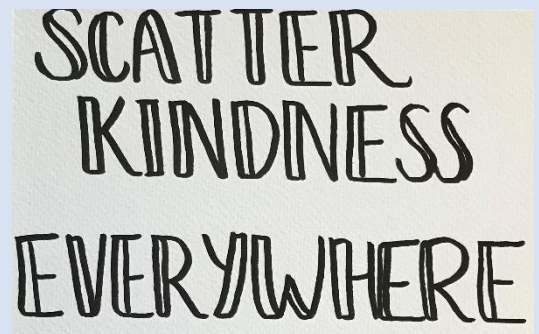 SCATTER
KINDNESS
EVERYWHERE